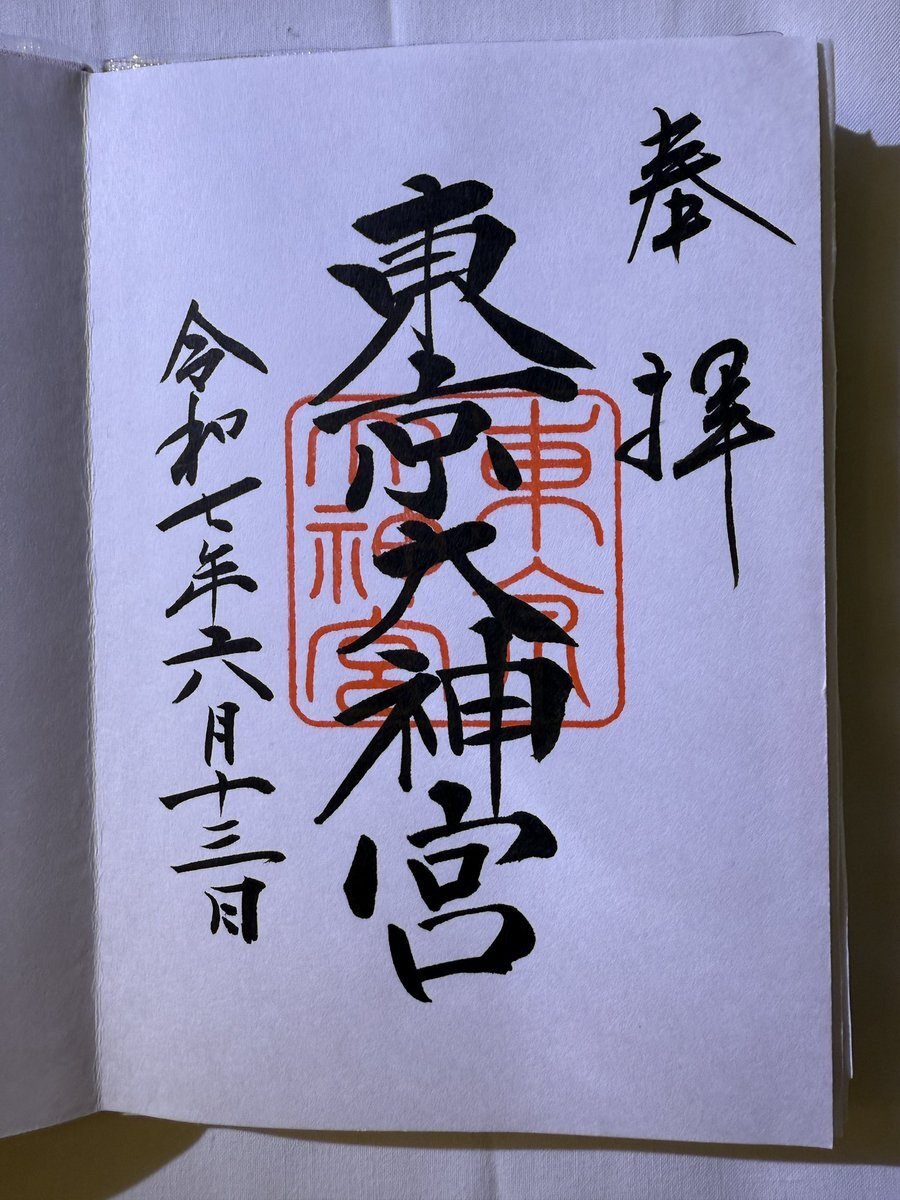 奉拝
東京大神宮
東京
大神宮
令和七年六月十三日